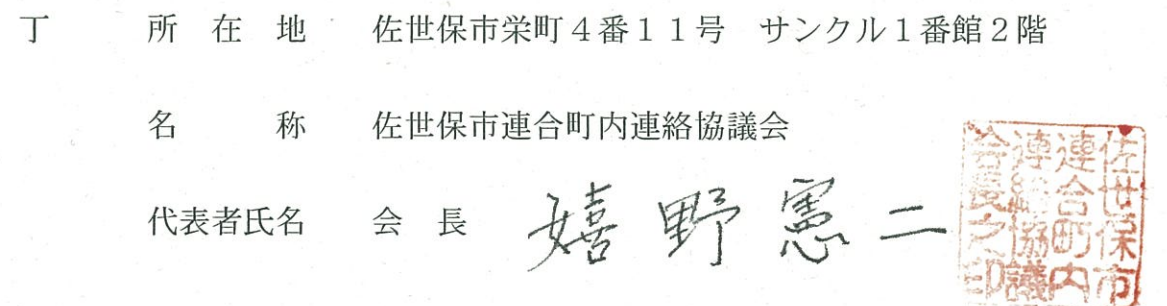 丁　所　在　地　佐世保市栄町４番１１号　サンクル１番館２階
名　　　称　佐世保市連合町内連絡協議会
代表者氏名　会　長　嬉野憲二
佐世保市
連合町内
連絡協議
会長之印